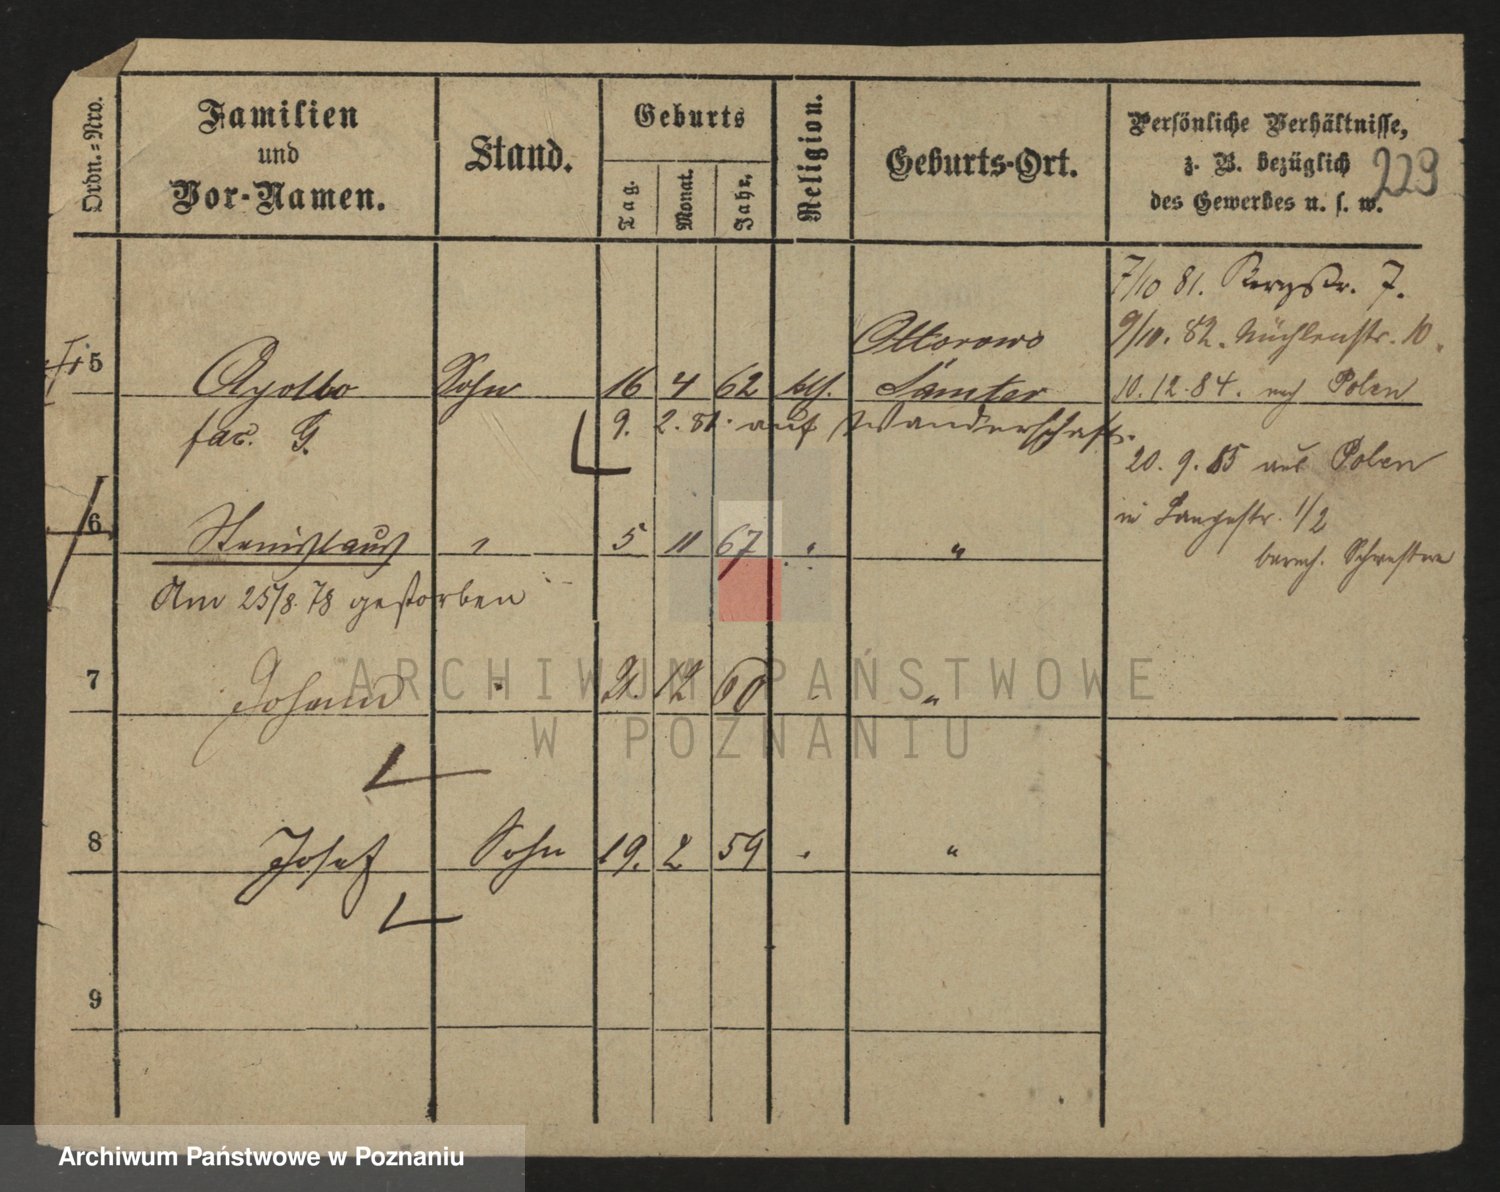 Ordn.=Nro.
Familien
und
Vor-Namen.
Stand.
Geburts
Tag.
Monat.
Jahr.
Religion.
Geburts-Ort.
Persönliche Verhältnisse,
z. B. bezüglich
des Gewerbes u. s. w.
229
7/10 81. Bergstr. 7.
9/10. 82. Mühlenstr. 10.
10. 12. 84. nach Polen
20. 9. 85 aus Polen
in Langestr. 1/2
5 Sohn 16 4 62 klf. Ottorowo
Samter
fac. G. 9. 2. 81. auf Wanderschaft.
6 Stanislaus " 5 11 67 " "
Am 25/8. 78 gestorben
7 Johann " 21. 12 60 "
8 Josef Sohn 19. 2 59 " "
9
ARCHIWUM PAŃSTWOWE
W POZNANIU
Archiwum Państwowe w Poznaniu